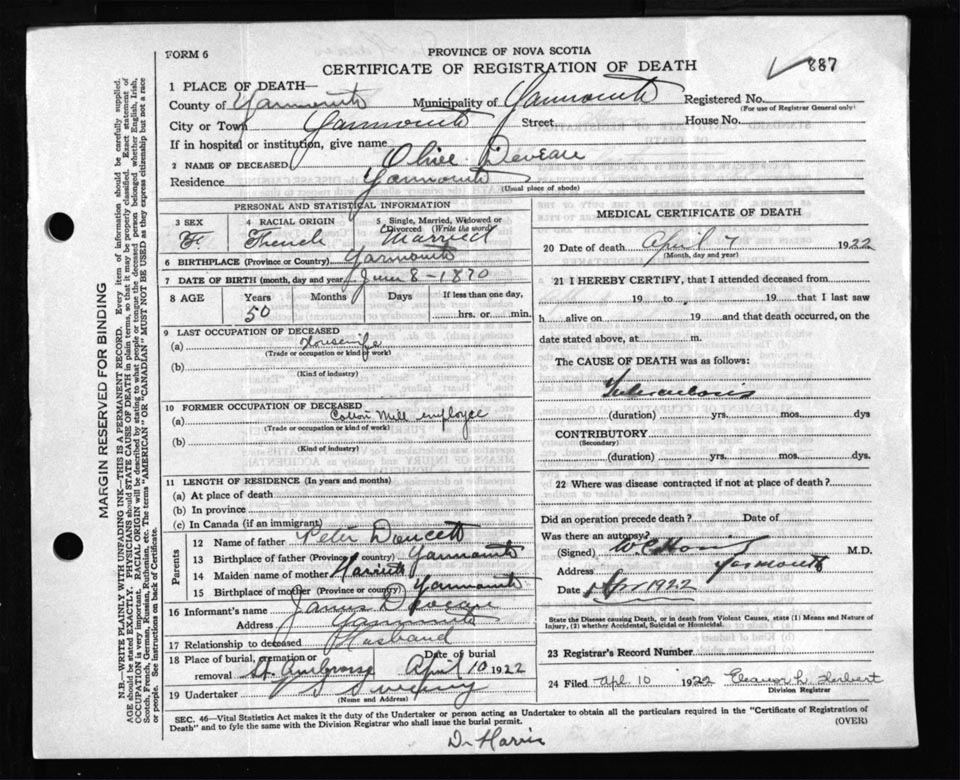 FORM 6
PROVINCE OF NOVA SCOTIA
CERTIFICATE OF REGISTRATION OF DEATH
887
1 PLACE OF DEATH—
County of Yarmouth Municipality of Yarmouth Registered No.
(For use of Registrar General only)
City or Town Yarmouth Street House No.
If in hospital or institution, give name
2 NAME OF DECEASED Olive Deveau
Residence Yarmouth
(Usual place of abode)
PERSONAL AND STATISTICAL INFORMATION
3 SEX
Fe
4 RACIAL ORIGIN
French
5 Single, Married, Widowed or Divorced (Write the word)
Married
6 BIRTHPLACE (Province or Country) Yarmouth
7 DATE OF BIRTH (month, day and year) June 8 - 1870
8 AGE Years Months Days If less than one day,
50 hrs. or min.
9 LAST OCCUPATION OF DECEASED
(a) Housewife
(Trade or occupation or kind of work)
(b)
(Kind of industry)
10 FORMER OCCUPATION OF DECEASED
(a) Cotton Mill employee
(Trade or occupation or kind of work)
(b)
(Kind of industry)
11 LENGTH OF RESIDENCE (In years and months)
(a) At place of death
(b) In province
(c) In Canada (if an immigrant)
Parents
12 Name of father Peter Doucett
13 Birthplace of father (Province or country) Yarmouth
14 Maiden name of mother Harriett
15 Birthplace of mother (Province or country) Yarmouth
16 Informant's name James Deveau
Address Yarmouth
17 Relationship to deceased Husband
18 Place of burial, cremation or removal St. Ambrose Date of burial April 10 1922
19 Undertaker
(Name and Address)
MEDICAL CERTIFICATE OF DEATH
20 Date of death April 7 1922
(Month, day and year)
21 I HEREBY CERTIFY, that I attended deceased from
19 to 19 that I last saw
h alive on 19 and that death occurred, on the
date stated above, at m.
The CAUSE OF DEATH was as follows:
Tuberculosis
(duration) yrs. mos. dys
CONTRIBUTORY
(Secondary)
(duration) yrs. mos. dys.
22 Where was disease contracted if not at place of death?
Did an operation precede death? Date of
Was there an autopsy?
(Signed) M.D.
Address Yarmouth
Date Apr 1922
State the Disease causing Death, or in death from Violent Causes, state (1) Means and Nature of
Injury, (2) whether Accidental, Suicidal or Homicidal.
23 Registrar's Record Number
24 Filed Apl. 10 1922 Eleanor L. Herbert
Division Registrar
SEC. 46—Vital Statistics Act makes it the duty of the Undertaker or person acting as Undertaker to obtain all the particulars required in the "Certificate of Registration of
Death" and to fyle the same with the Division Registrar who shall issue the burial permit.
(OVER)
Dr Harris
MARGIN RESERVED FOR BINDING
N.B.—WRITE PLAINLY WITH UNFADING INK—THIS IS A PERMANENT RECORD. Every item of information should be carefully supplied.
AGE should be stated EXACTLY. PHYSICIANS should STATE CAUSE OF DEATH in plain terms, so that it may be properly classified. Exact statement of
OCCUPATION is very important. RACIAL ORIGIN will be described by stating to what people or tongue the deceased person belonged whether English, Irish,
Scotch, French, German, Russian, Ruthenian, etc. The terms "AMERICAN" OR "CANADIAN" MUST NOT BE USED as they express citizenship but not a race
or people. See instructions on back of Certificate.